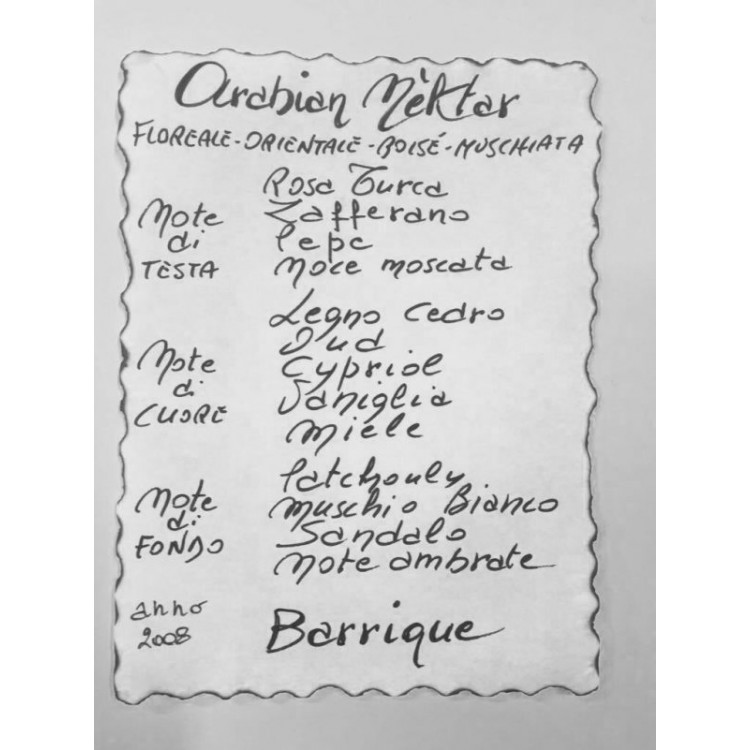 Arabian Nèktar
FLOREALE-ORIENTALE-BOISÉ-MUSCHIATA
Note di TESTA
Rosa Turca
Zafferano
Pepe
Noce moscata
Note di CUORE
Legno Cedro
Oud
Cypriol
Vaniglia
Miele
Note di FONDO
Patchouly
Muschio Bianco
Sandalo
Note ambrate
anno 2008
Barrique